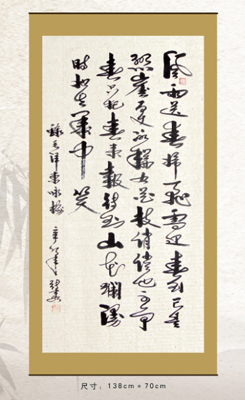 风雨送春归飞雪迎春到已是
悬崖百丈冰犹有花枝俏俏也不争
春只把春来报待到山花烂漫
时她在丛中笑
录毛泽东咏梅
尺寸：138cm×70cm